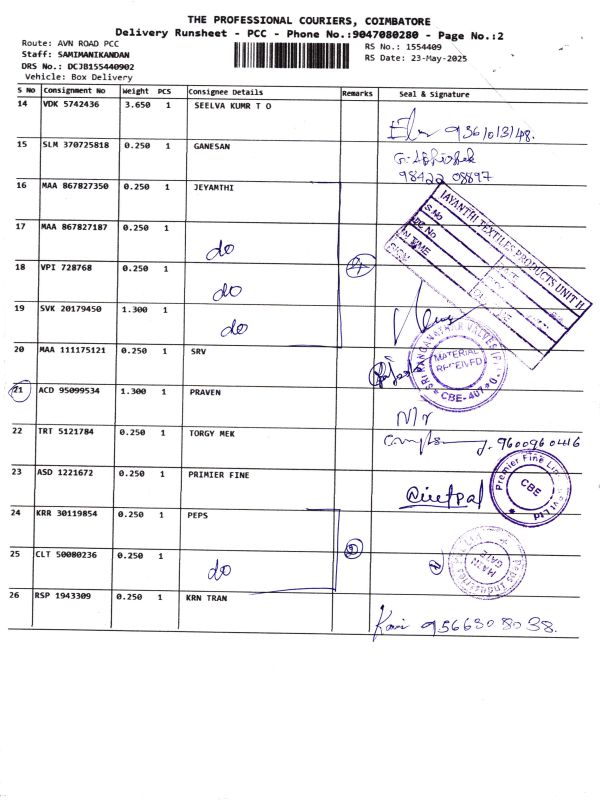 THE PROFESSIONAL COURIERS, COIMBATORE
Delivery Runsheet - PCC - Phone No.:9047080280 - Page No.:2
Route: AVN ROAD PCC
Staff: SAMIMANIKANDAN
DRS No.: DCJB155440902
Vehicle: Box Delivery
RS No.: 1554409
RS Date: 23-May-2025
S No Consignment No Weight PCS Consignee Details Remarks Seal & Signature
14 VDK 5742436 3.650 1 SEELVA KUMR T O
15 SLM 370725818 0.250 1 GANESAN
G. Abhishek
98422 08897
16 MAA 867827350 0.250 1 JEYAMTHI
JAYANTHI TEXTILES PRODUCTS UNIT II
S.No
IN TIME
SIGN
17 MAA 867827187 0.250 1 do
18 VPI 728768 0.250 1 do
19 SVK 20179450 1.300 1 do
20 MAA 111175121 0.250 1 SRV
MATERIAL RECEIVED
CBE-407
21 ACD 95099534 1.300 1 PRAVEN
22 TRT 5121784 0.250 1 TORGY MEK
9600960416
23 ASD 1221672 0.250 1 PRIMIER FINE
Premier Fine
CBE
24 KRR 30119854 0.250 1 PEPS
25 CLT 50080236 0.250 1 do
MAIN GATE
26 RSP 1943309 0.250 1 KRN TRAN
956630 8038.